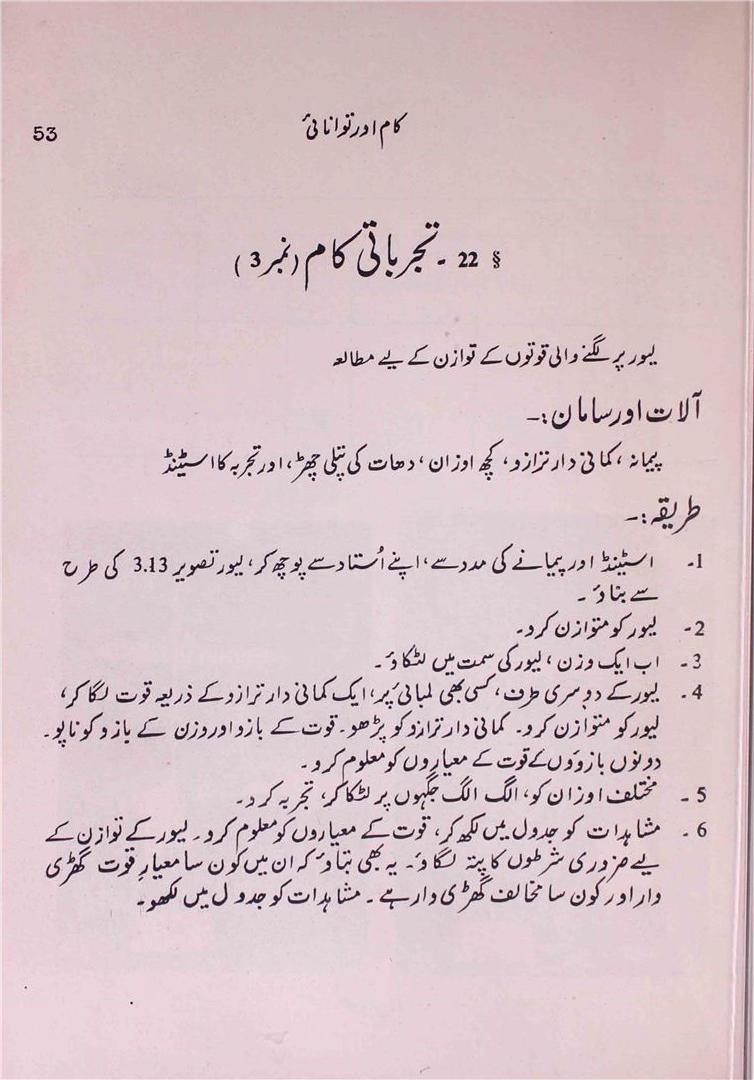 53
کام اور توانائی
§ 22 ۔ تجرباتی کام (نمبر 3)
لیور پر لگنے والی قوتوں کے توازن کے لیے مطالعہ
آلات اور سامان :۔
پیمانہ، کمانی دار ترازو، کچھ اوزان، دھات کی پتلی چھڑ، اور تجربہ کا اسٹینڈ
طریقہ :۔
1۔ اسٹینڈ اور پیمانے کی مدد سے، اپنے اُستاد سے پوچھ کر، لیور تصویر 3.13 کی طرح
سے بناؤ ۔
2۔ لیور کو متوازن کرو۔
3۔ اب ایک وزن، لیور کی سمت میں لٹکاؤ۔
4۔ لیور کے دوسری طرف، کسی بھی لمبائی پر، ایک کمانی دار ترازو کے ذریعہ قوت لگا کر،
لیور کو متوازن کرو۔ کمانی دار ترازو کو پڑھو۔ قوت کے بازو اور وزن کے بازو کو ناپو۔
دونوں بازوؤں کے قوت کے معیاروں کو معلوم کرو۔
5۔ مختلف اوزان کو، الگ الگ جگہوں پر لٹکا کر، تجربہ کرو۔
6۔ مشاہدات کو جدول میں لکھ کر، قوت کے معیاروں کو معلوم کرو۔ لیور کے توازن کے
لیے ضروری شرطوں کا پتہ لگاؤ۔ یہ بھی بتاؤ کہ ان میں کون سا معیارِ قوت گھڑی
وار اور کون سا مخالف گھڑی وار ہے۔ مشاہدات کو جدول میں لکھو۔